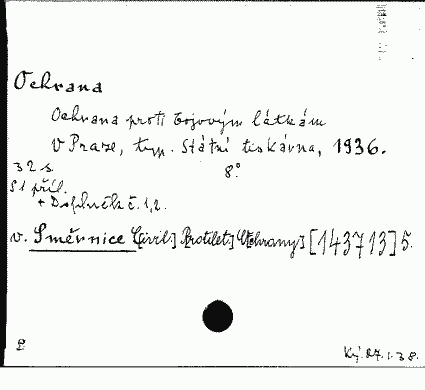 Ochrana
Ochrana proti bojovým látkám
V Praze, typ. Státní tiskárna, 1936.
32 s. 8°
S 1 příl.
+ Doplněk č. 1, 2.
v. Směrnice C[ivil.] P[rotilet.] O[chrany] [143713] 5.
Ký. 27.1.38.